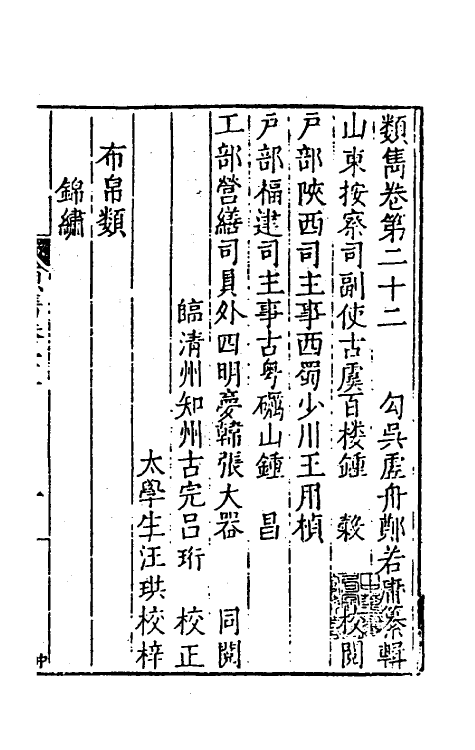 類雋卷第二十二　勾吳虛舟鄭若庸纂輯
山東按察司副使古虞百楼鍾　穀　校閱
戶部陝西司主事西蜀少川王用楨
戶部福建司主事古粤礪山鍾　昌
工部營繕司員外四明夢韓張大器　同閱
臨清州知州古完吕珩　校正
太學生汪珙校梓
布帛類
錦繡